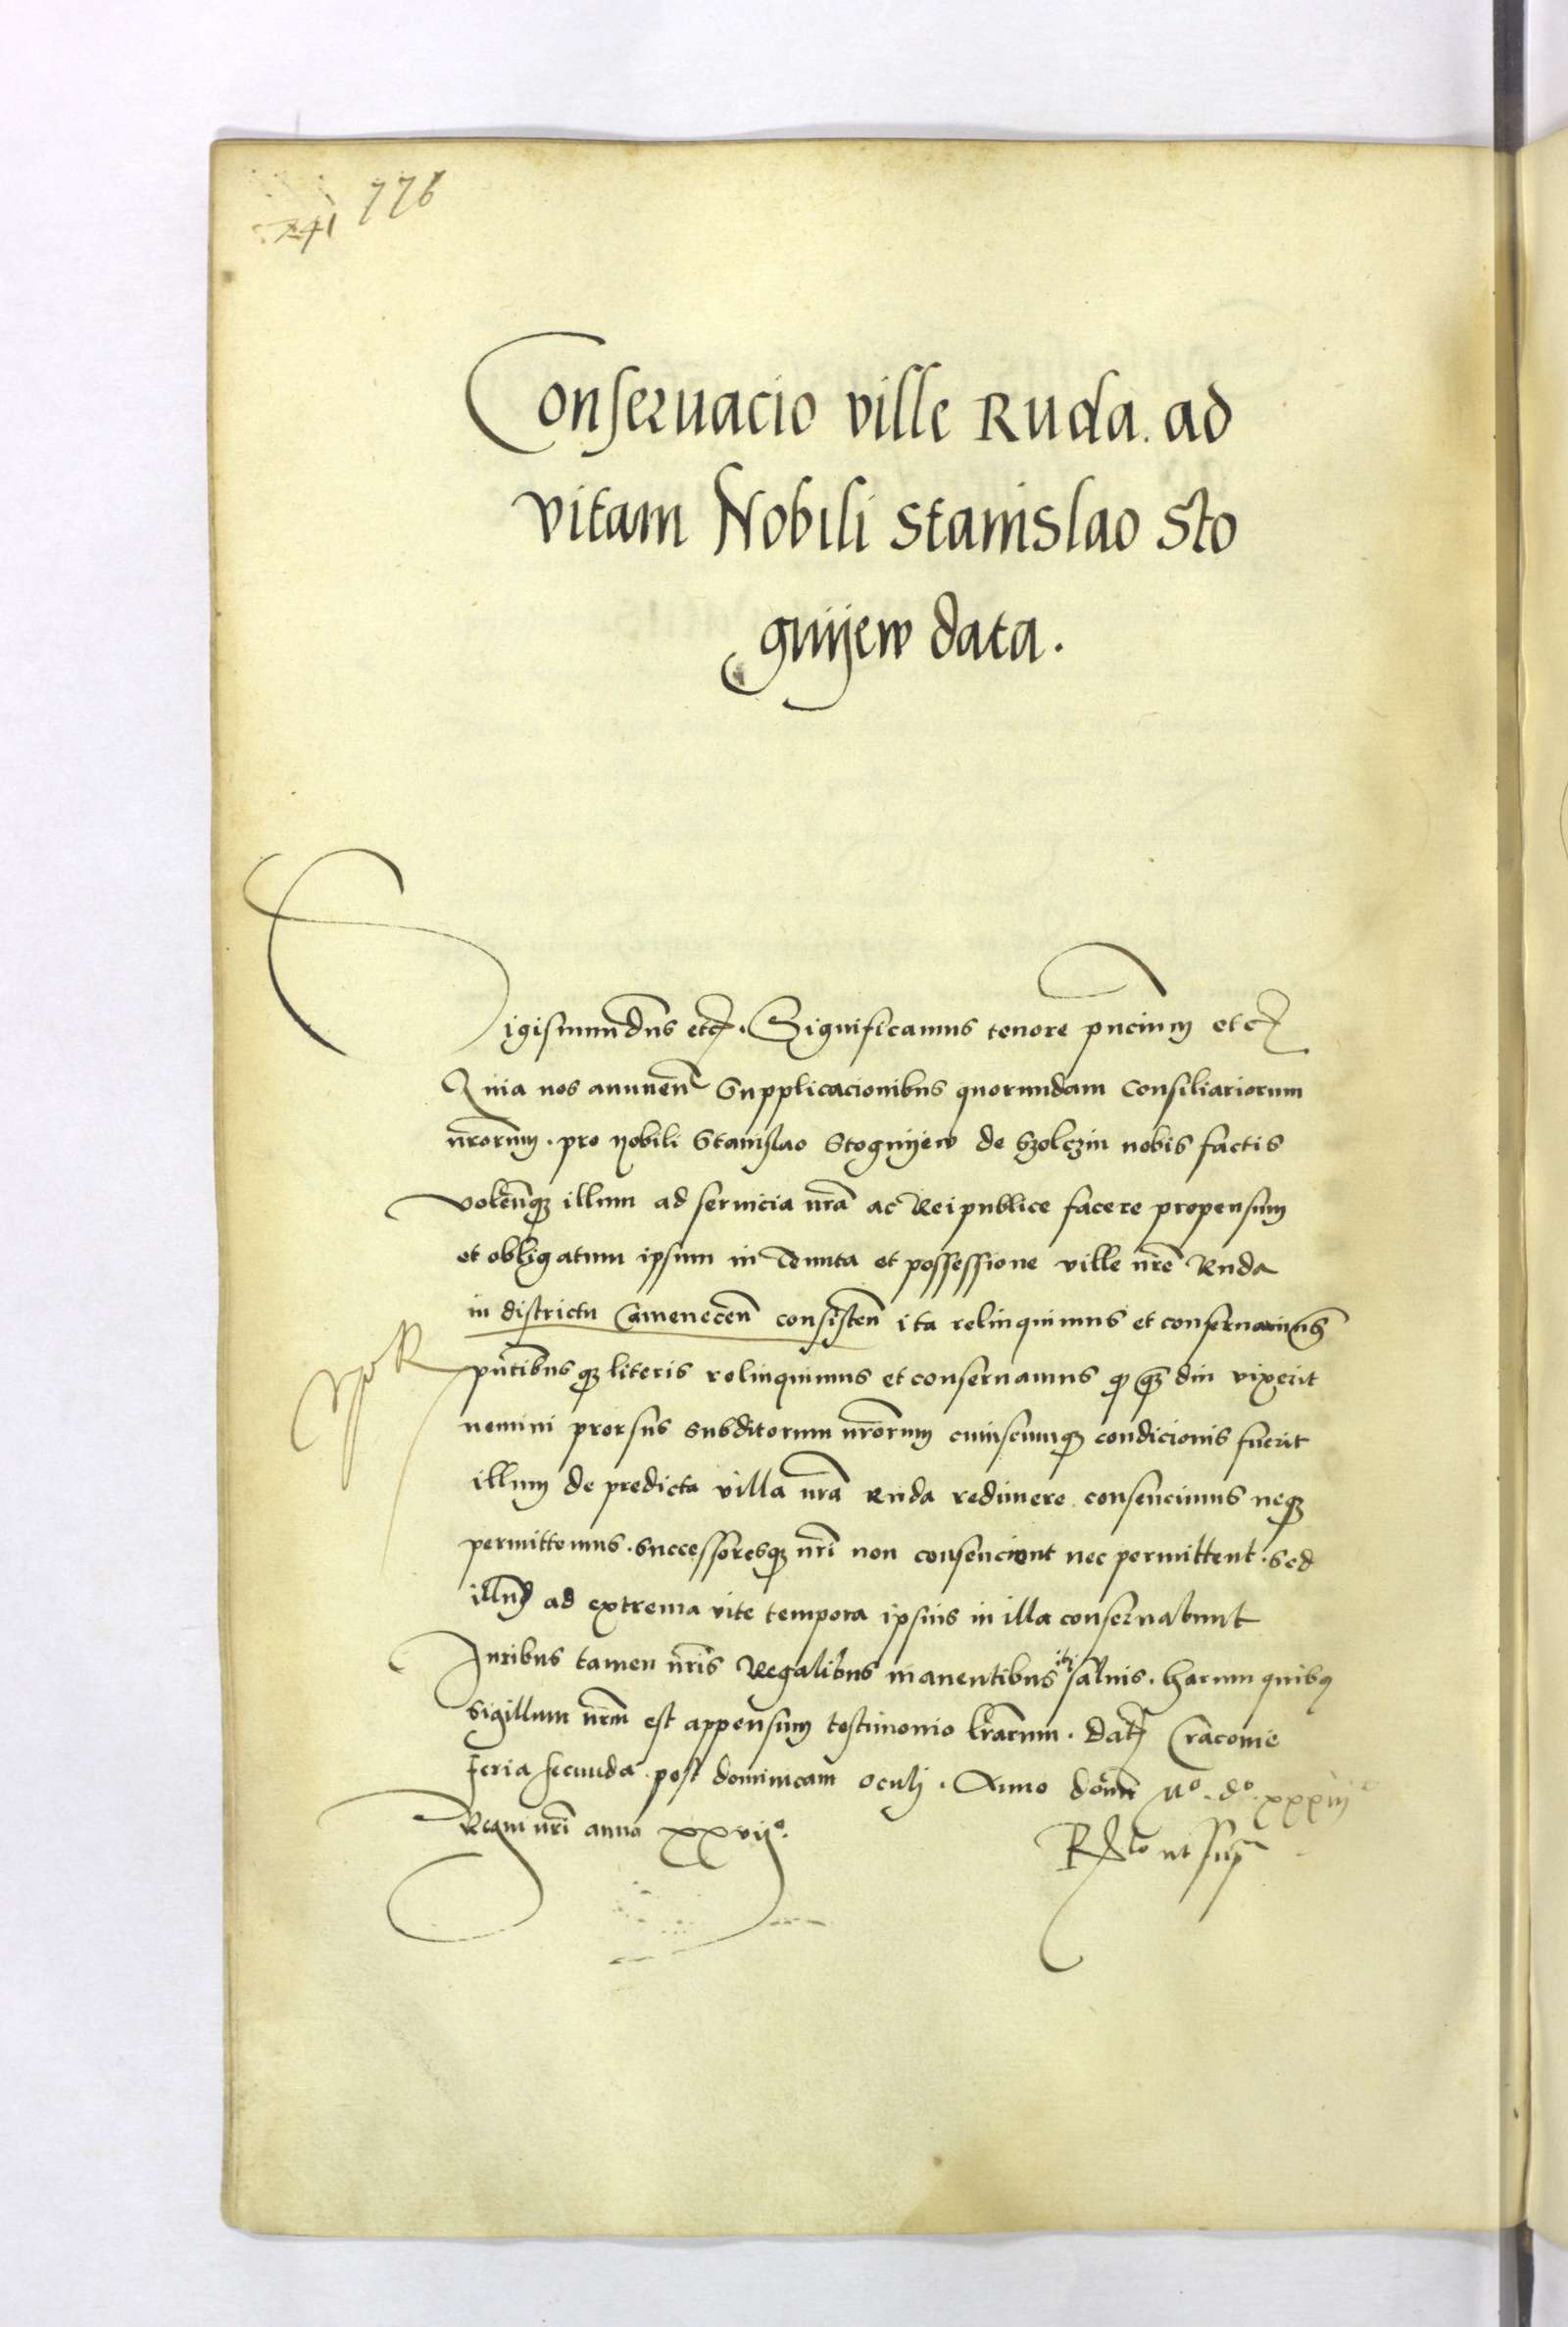 776
741
Conseruacio ville Ruda. ad
vitam Nobili Stanislao Sto
gnijew data.
Sigismundus etc. Significamus tenore pn̄cium etc
Quia nos annuen̄ Supplicacionibus quorumdam Consiliariorum
nr̄orum. pro Nobili Stanislao Stognijew de Szolczin nobis factis
volen̄q illum ad seruicia nr̄a ac Reipublice facere propensum
et obligatum ipsum in Tenuta et possessione ville nr̄e Ruda
in districtu Camenecen̄ consisten̄ ita relinquimus et conseruauimus
pn̄tibusq literis relinquimus et conseruamus q qz diu vixerit
nemini prorsus subditorum nr̄orum cuiuscumq condicionis fuerit
illum de predicta villa nr̄a Ruda redimere consencimus neq
permittemus. Successoresq nr̄i non consencient nec permittent. Sed
illum ad extrema vite tempora ipsius in illa conseruabunt
Iuribus tamen nr̄is Regalibus manentibus ibi saluis. harum quibus
sigillum nr̄m est appensum testimonio lr̄arum. Dat Cracouie
feria secunda post dominicam oculj. Anno domī Mº. dº. xxxiijº
Regni nr̄i anno xxvijº.
Rlo ut sup